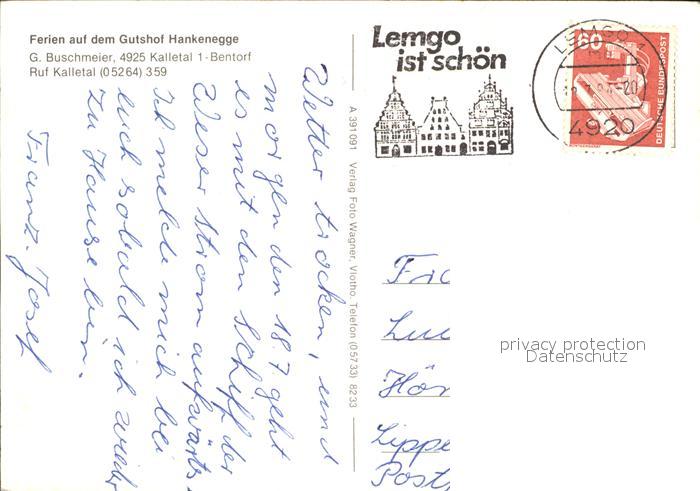 Ferien auf dem Gutshof Hankenegge
G. Buschmeier, 4925 Kalletal 1-Bentorf
Ruf Kalletal (05264) 359
Wetter trocken, und
morgen den 18.7 geht
es mit den Schiff der
Weser strom aufwärts.
Ich melde mich bei
euch sobald ich wieder
zu Hause bin.
Franz-Josef
A 391 091 Verlag Foto Wagner, Vlotho. Telefon (05733) 8233
Lemgo
ist schön
LEMGO
4920
60
DEUTSCHE BUNDESPOST
Lipp
Post
privacy protection
Datenschutz